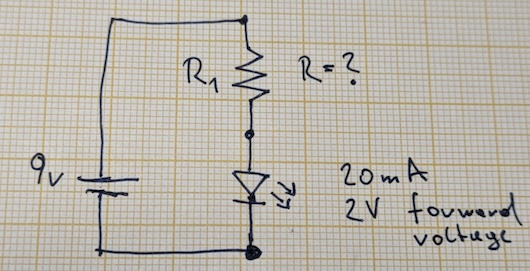 R1 R=?
9V
20mA
2V forward
voltage